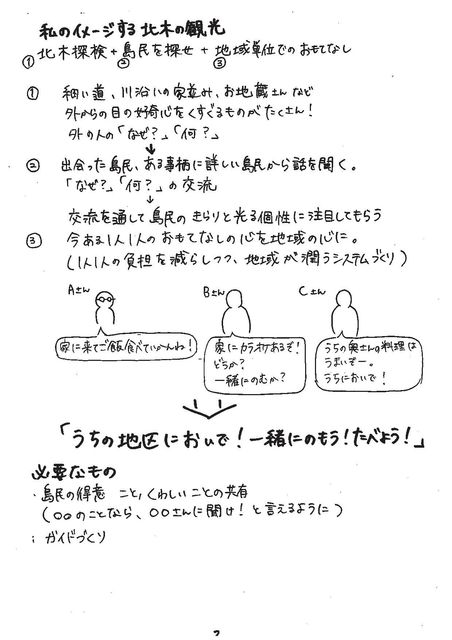 私のイメージする北木の観光
①北木探検+②島民を探せ+③地域単位でのおもてなし
① 細い道、川沿いの家並み、お地蔵さんなど
外からの目の好奇心をくすぐるものがたくさん!
外の人の「なぜ?」「何?」
↓
② 出会った島民、ある事柄に詳しい島民から話を聞く。
「なぜ?」「何?」の交流
↓
交流を通して島民のきらりと光る個性に注目してもらう
③ 今ある1人1人のおもてなしの心を地域の心に。
(1人1人の負担を減らしつつ、地域が潤うシステムづくり)
Aさん
Bさん
Cさん
家に来てご飯食べていかんね!
家にカラオケあるぞ!
どうか?
一緒にのむか?
うちの奥さんの料理は
うまいぞー。
うちにおいで!
「うちの地区においで!一緒にのもう!たべよう!」
必要なもの
・島民の得意 こと、くわしいことの共有
(○○のことなら、○○さんに聞け!と言えるように)
; ガイドづくり